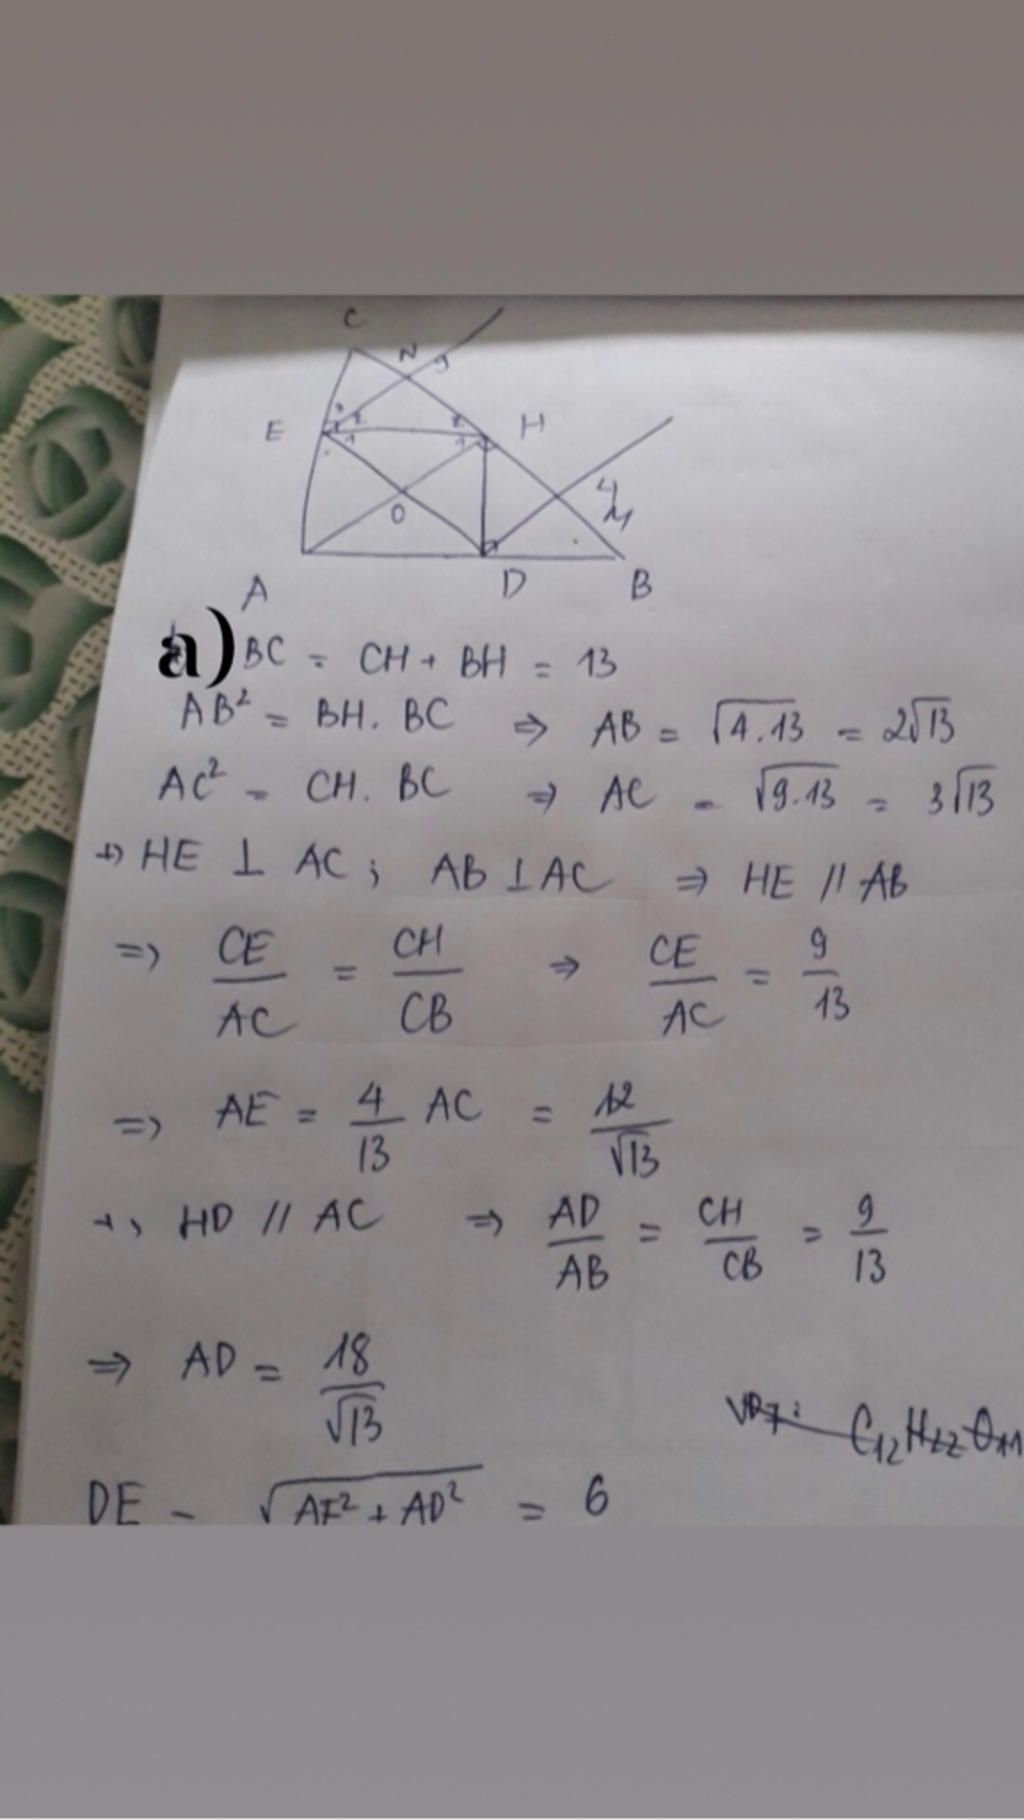 C
N
E
H
O
M
A
D
B
a) BC = CH + BH = 13
AB² = BH. BC ⇒ AB = √4.13 = 2√13
AC² = CH. BC ⇒ AC = √9.13 = 3√13
+) HE ⊥ AC ; AB ⊥ AC ⇒ HE // AB
⇒ CE/AC = CH/CB ⇒ CE/AC = 9/13
⇒ AE = 4/13 AC = 12/√13
+, HD // AC ⇒ AD/AB = CH/CB = 9/13
⇒ AD = 18/√13
C₁₂H₂₂O₁₁
DE = √AE² + AD² = 6